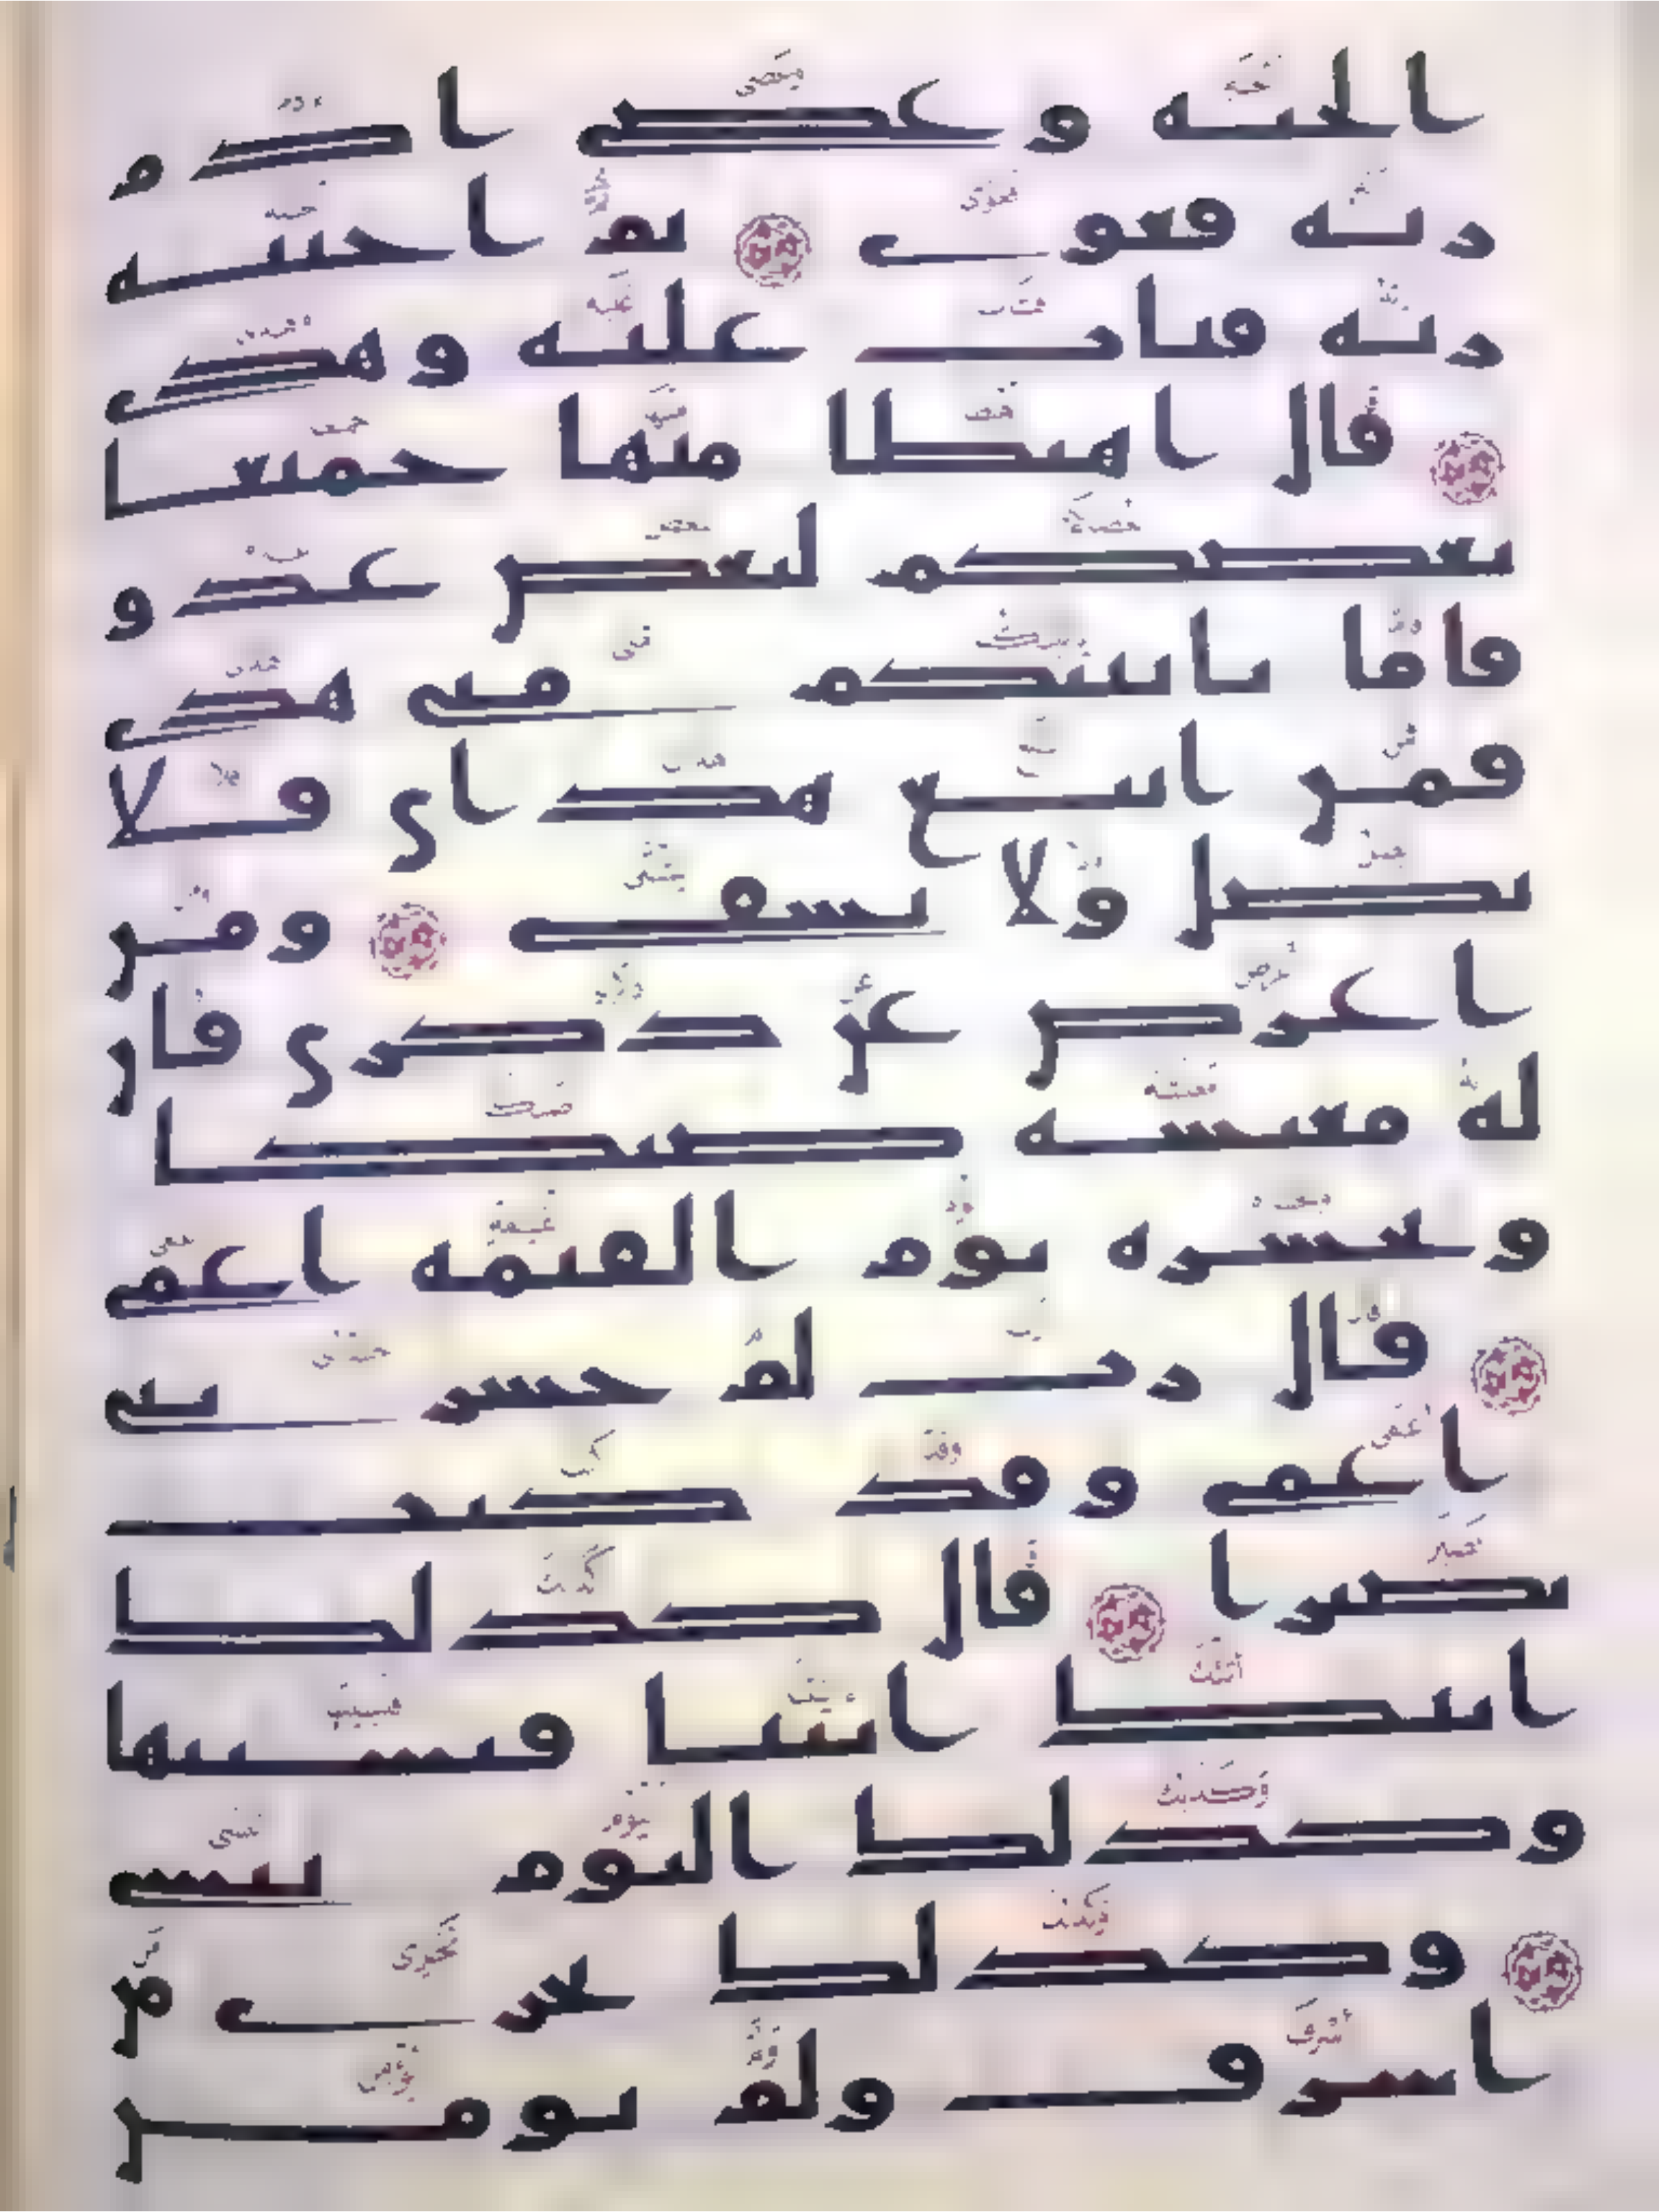 الجنة وعصى ادم
ربه فغوى ثم اجتبه
ربه فتاب عليه وهدى
قال اهبطا منها جميعا
بعضكم لبعض عدو
فاما ياتينكم منى هدى
فمن اتبع هداى فلا
يضل ولا يشقى ومن
اعرض عن ذكرى فان
له معيشة ضنكا
ونحشره يوم القيمة اعمى
قال رب لم حشرتنى
اعمى وقد كنت
بصيرا قال كذلك
اتتك ايتنا فنسيتها
وكذلك اليوم تنسى
وكذلك نجزى من
اسرف ولم يومن